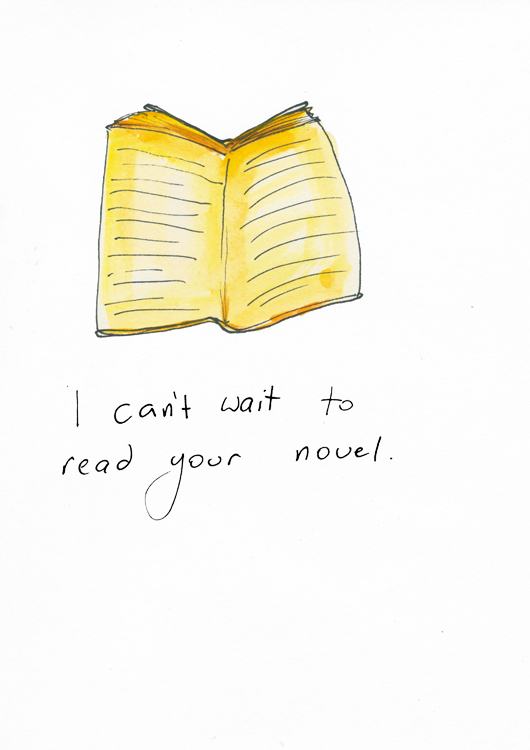 I can't wait to
read your novel.